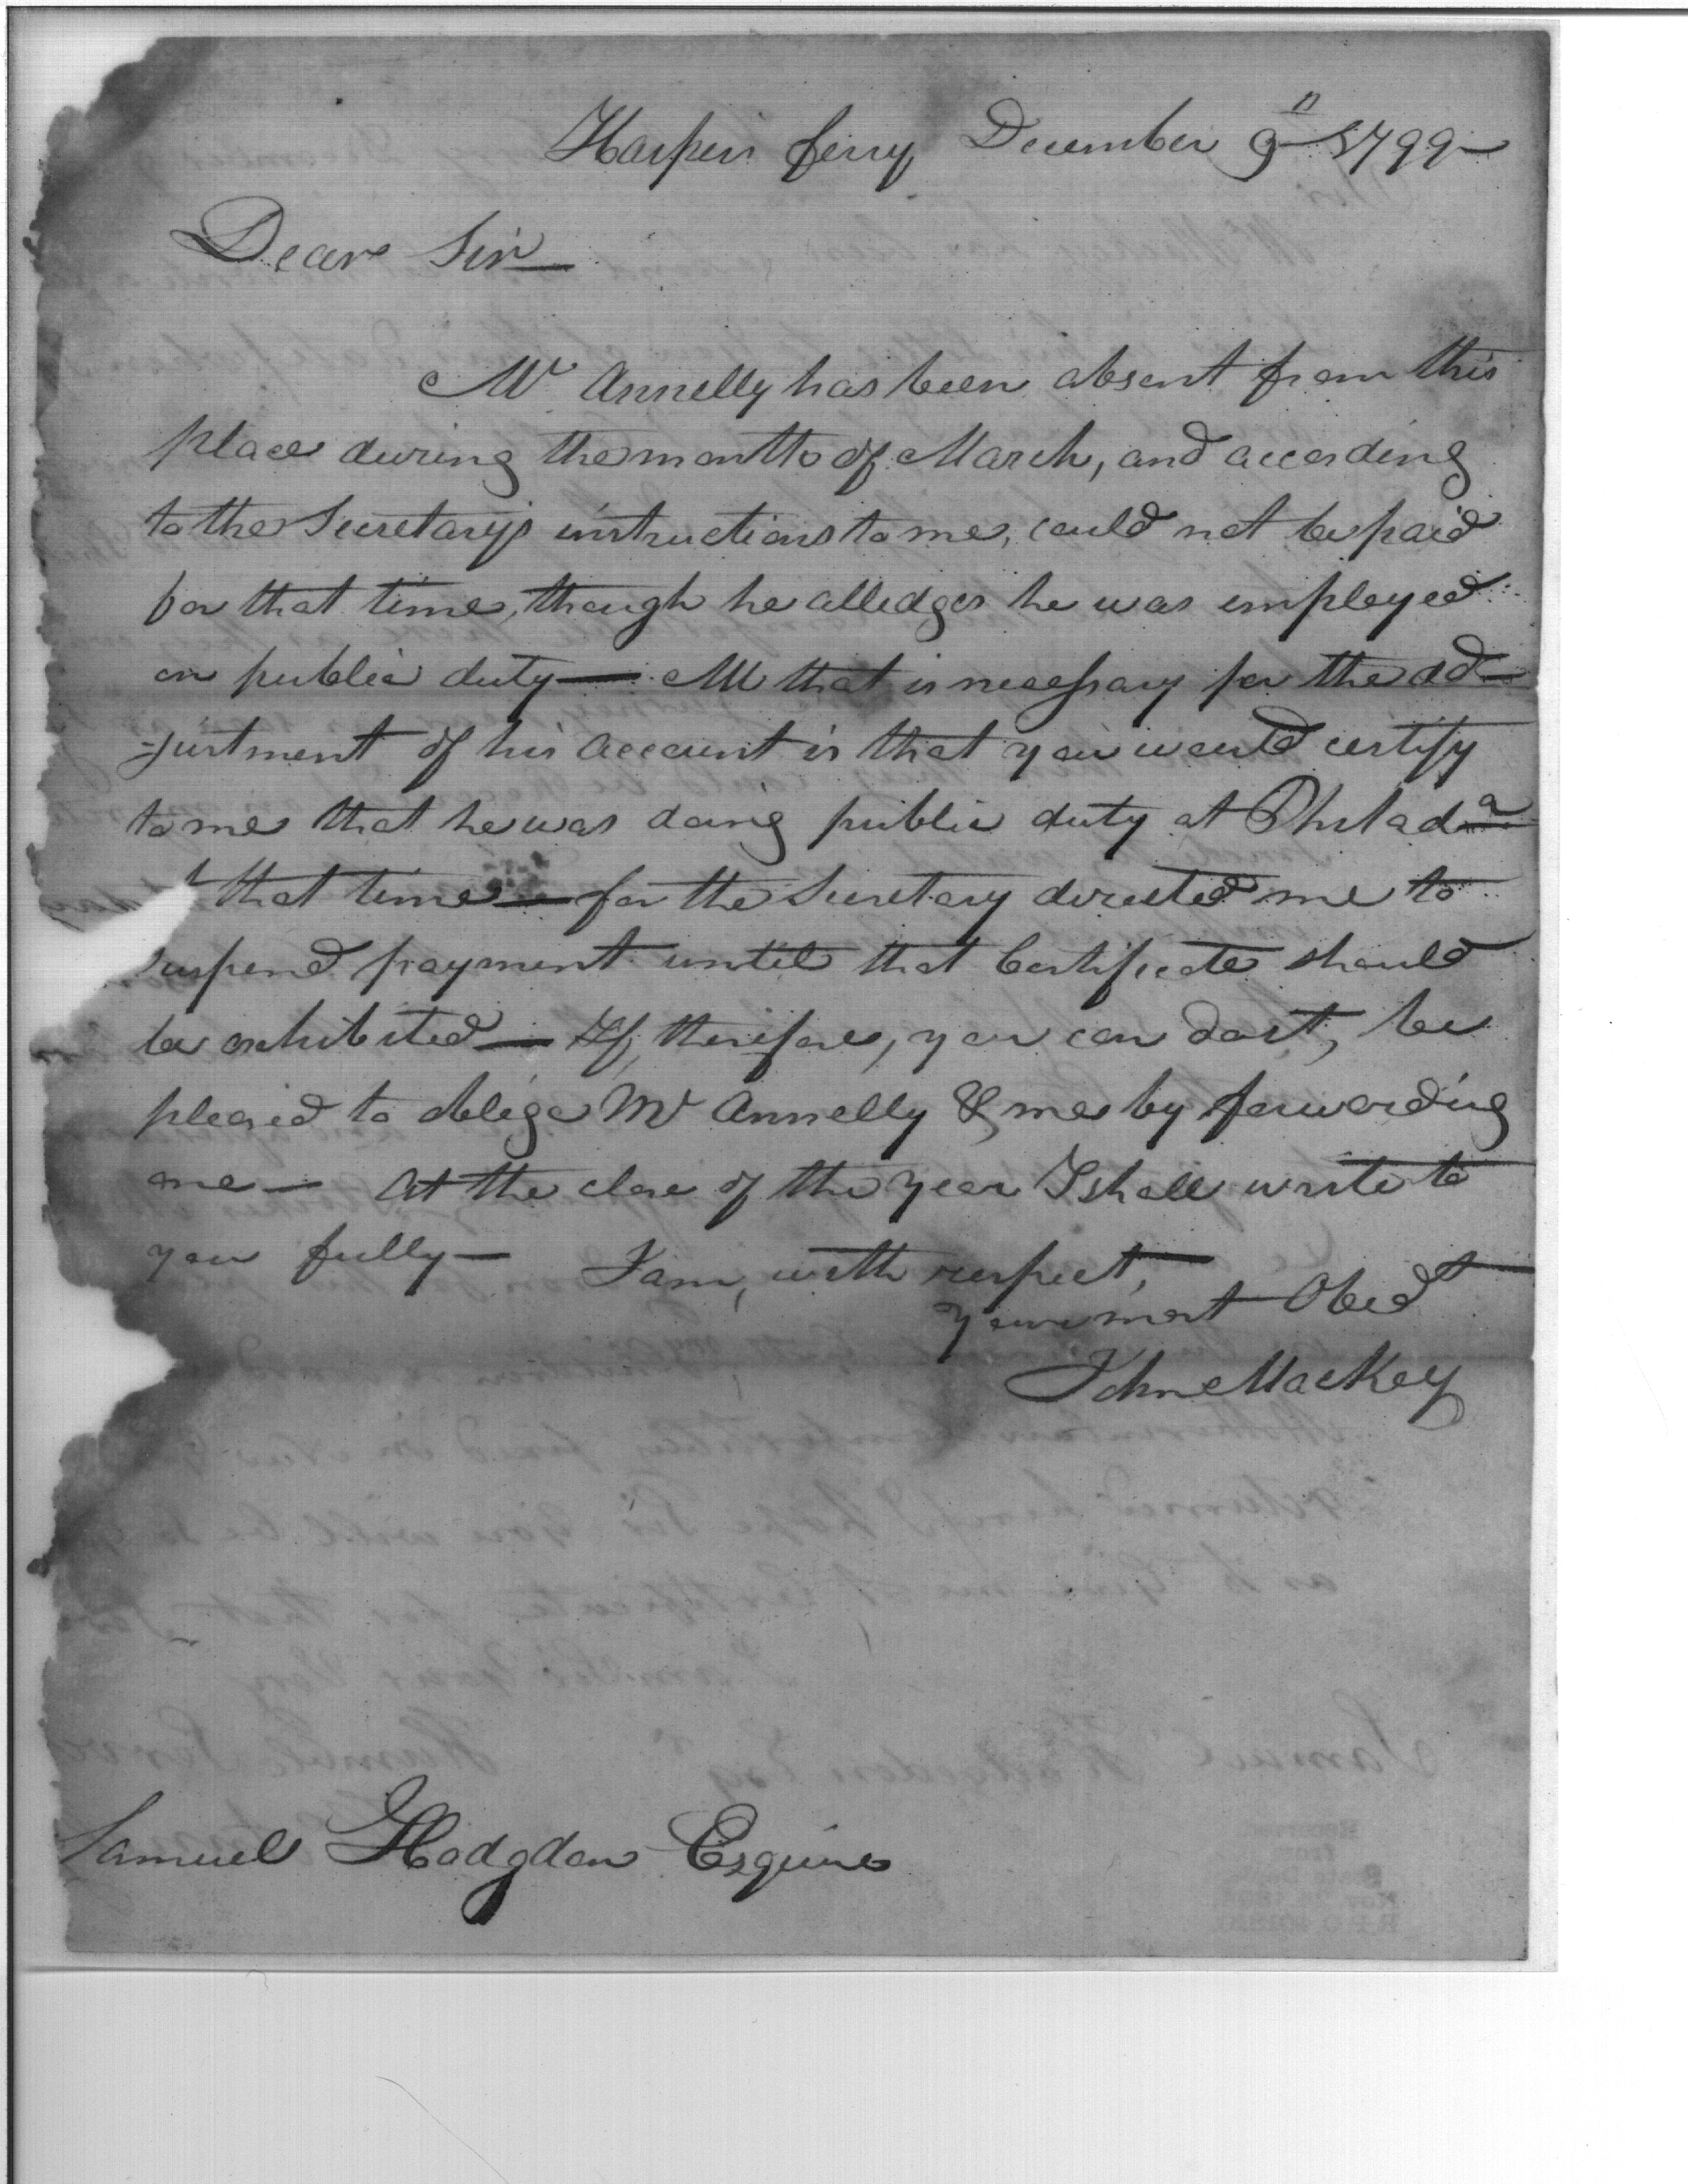 Harpers ferry December 9th 1799
Dear Sir—
Mr Annelly has been absent from this
place during the month of March, and according
to the Secretary's instructions to me, could not be paid
for that time, though he alledges he was employed
on public duty— All that is necessary for the ad-
-justment of his account is that you would certify
to me that he was doing public duty at Philada
t that time— for the Secretary directed me to
suspend payment until that Certificate should
be exhibited— If, therefore, you can do it, be
pleased to oblige Mr Annelly & me by forwarding
one— At the close of the year I shall write to
you fully— I am, with respect,
Your most Obedt
John Mackey
Samuel Hodgdon Esquire